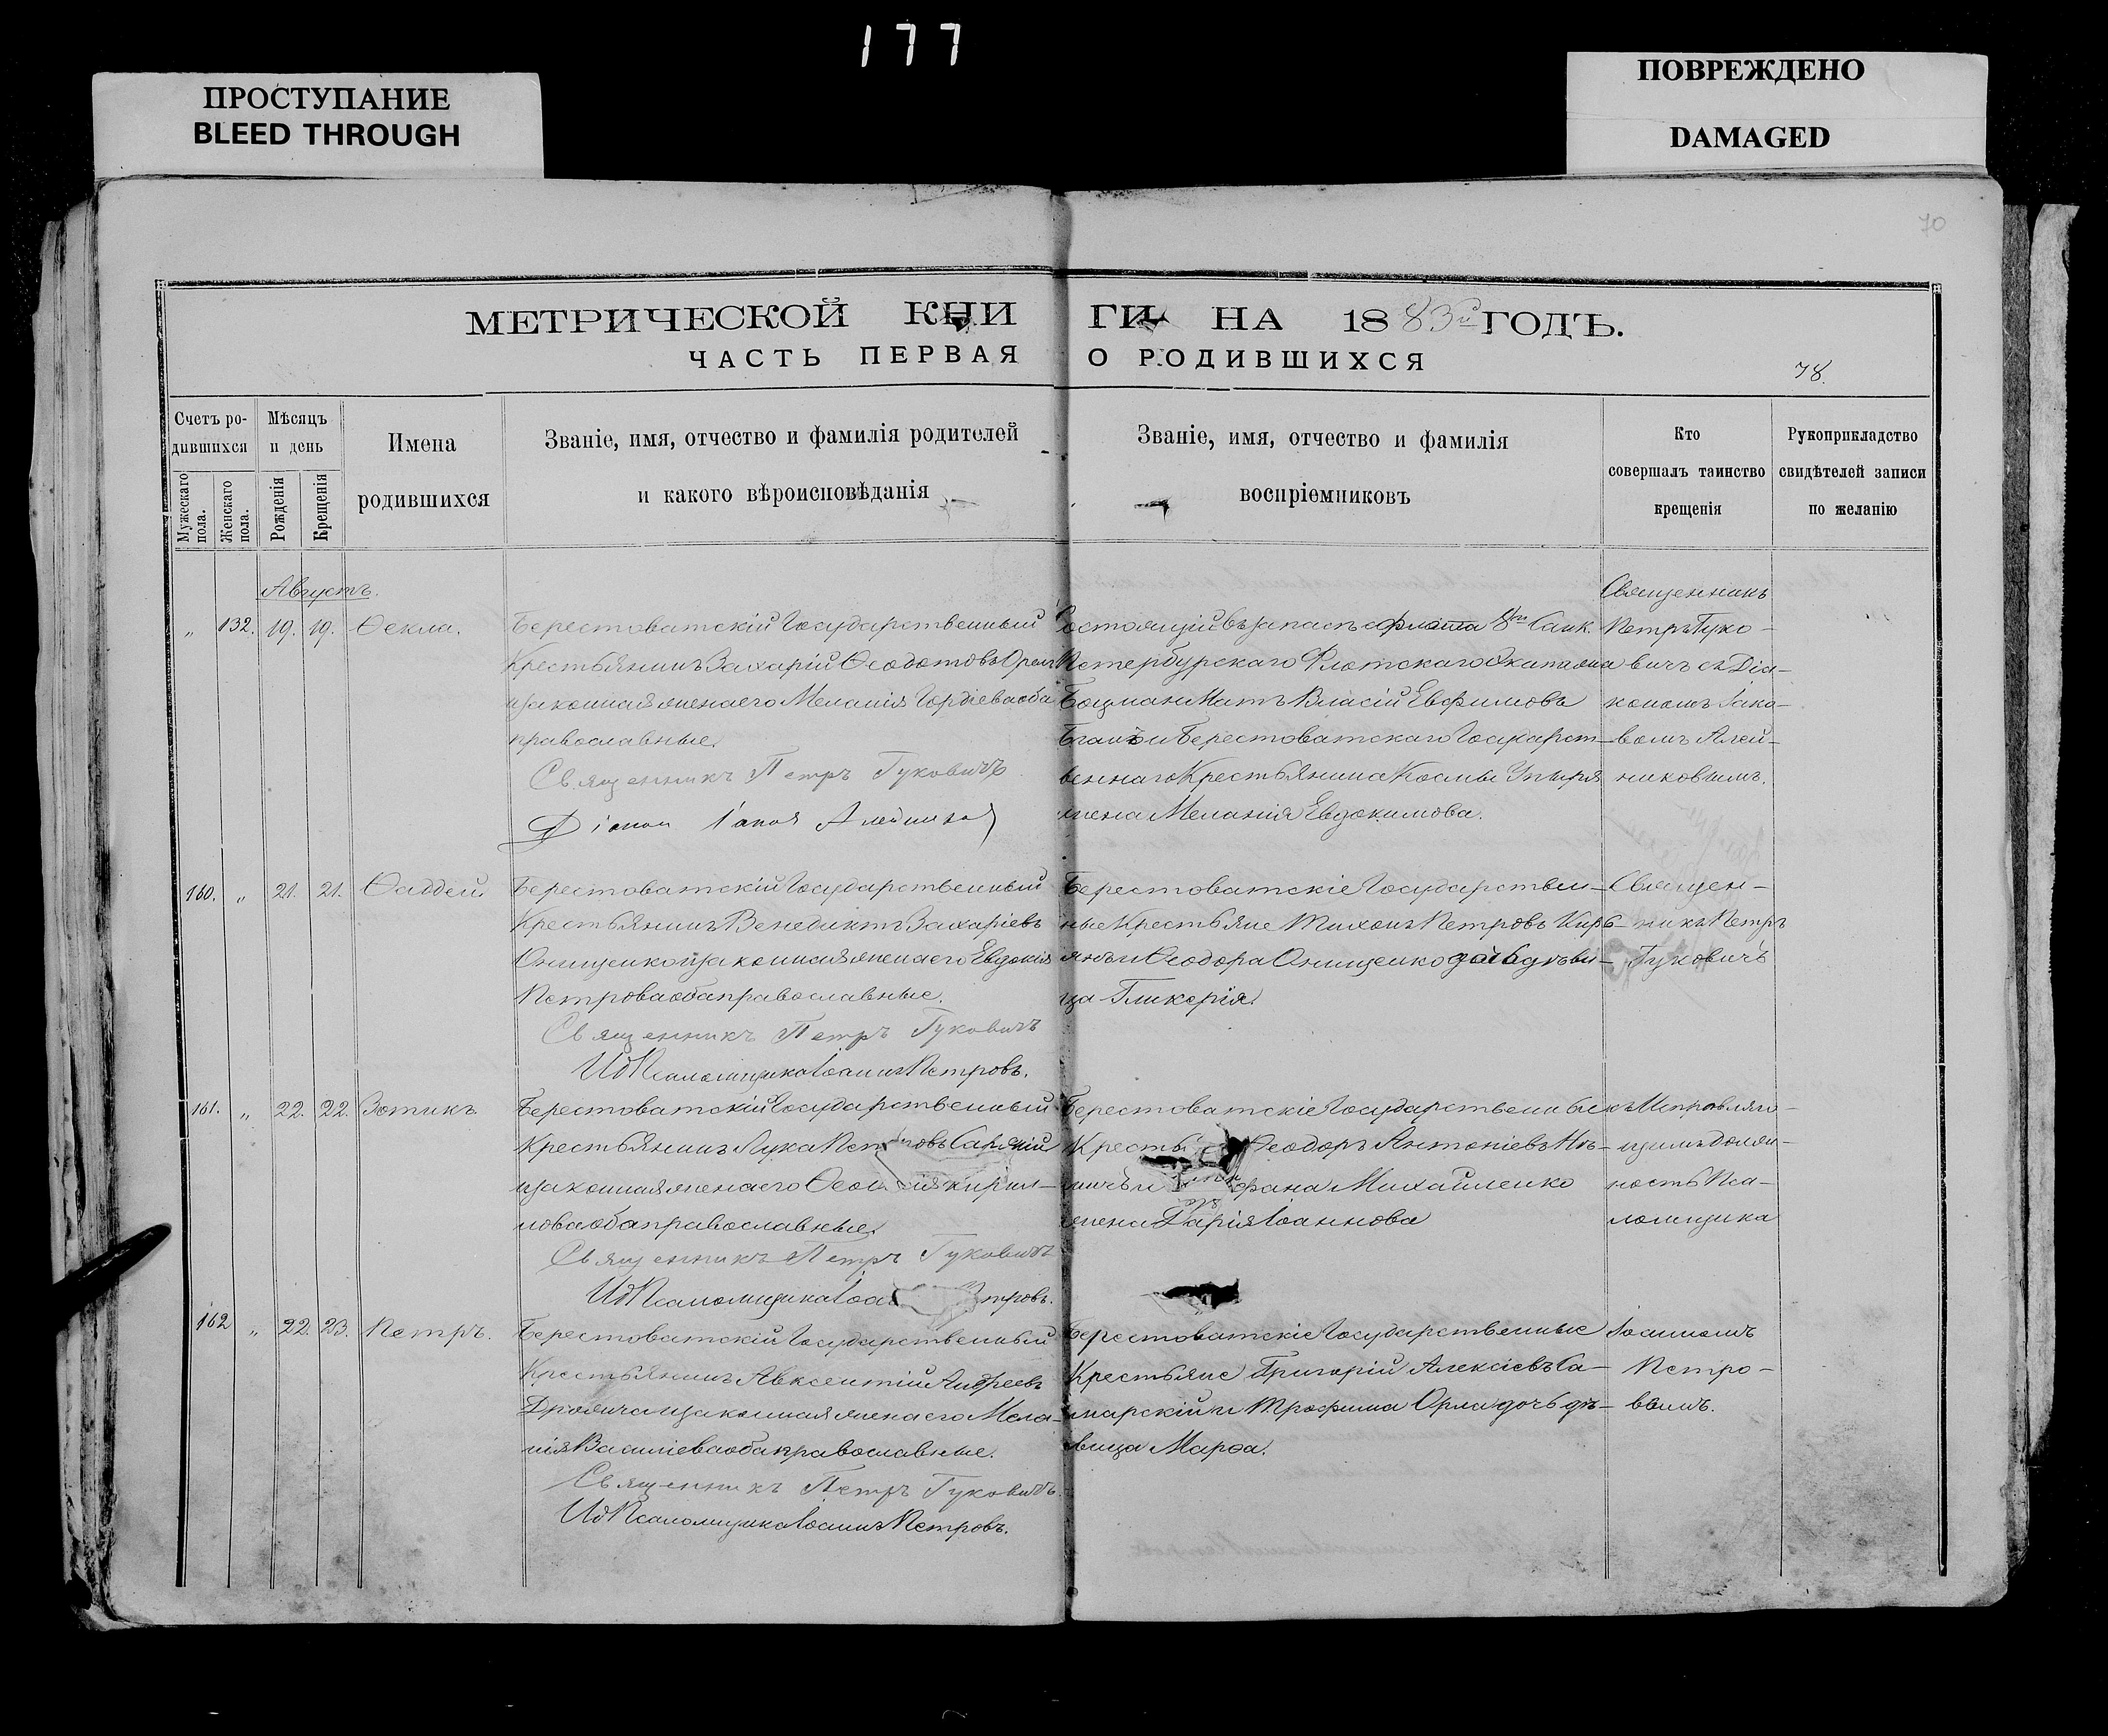 177
ПРОСТУПАНИЕ
BLEED THROUGH
ПОВРЕЖДЕНО
DAMAGED
70
МЕТРИЧЕСКОЙ КНИГИ НА 1883й ГОДЪ.
ЧАСТЬ ПЕРВАЯ О РОДИВШИХСЯ
78.
Счетъ родившихся
Мужескаго пола.
Женскаго пола.
Мѣсяцъ и день
Рожденія
Крещенія
Имена
родившихся
Званіе, имя, отчество и фамилія родителей
и какого вѣроисповѣданія
Званіе, имя, отчество и фамилія
воспріемниковъ
Кто
совершалъ таинство
крещенія
Рукоприкладство
свидѣтелей записи
по желанію
Августъ.
„ 132. 19. 19. Ѳекла.
Берестоватскій Государственный
Крестьянинъ Захарій Ѳеодотовъ Орел
и законная жена его Меланія Гордіева оба
православные.
Священникъ Петръ Гуковичъ
Діаконъ Іаковъ Алейников
Состоящій въ запасѣ флота 8го Санк.
Петербурскаго Флотскаго Экипажа
Боцманъ Матъ Власій Евфимовъ
и Берестоватскаго Государст-
веннаго Крестьянина Космы
жена Меланія Евдокимова.
Священникъ
Петръ Гуко-
вичъ съ Діа-
кономъ Іако-
вомъ Алей-
никовымъ.
160. „ 21. 21. Ѳаддей.
Берестоватскій Государственный
Крестьянинъ Венедиктъ Захаріевъ
Онищенко и законная жена его Евдокія
Петрова оба православные.
Священникъ Петръ Гуковичъ
ИдПсаломщика Іоаннъ Петровъ.
Берестоватскіе Государствен-
ные Крестьяне Тихонъ Петровъ Кирь-
янъ и Ѳеодора Онищенко дочь дѣви-
ца Гликерія.
Священ-
никъ Петръ
Гуковичъ
161. „ 22. 22. Зотикъ
Берестоватскій Государственный
Крестьянинъ Лука Пет ровъ
и законная жена его Ѳео ія Кирил-
лова оба православные.
Священникъ Петръ Гуковичъ
ИдПсаломщика Іоа тровъ.
Берестоватскіе Государственные
Кресть Ѳеодоръ Антоніевъ
и фана Михайленко
жена Дарія Іоаннова
съ Исправляю-
щимъ долж-
ность Пса-
ломщика
162 „ 22. 23. Петръ.
Берестоватскій Государственный
Крестьянинъ Авксентій Андреевъ
и законная жена его Мела-
нія Васильева оба православные.
Священникъ Петръ Гуковичъ.
ИдПсаломщика Іоаннъ Петровъ.
Берестоватскіе Государственные
Крестьяне Григорій Алексіевъ Са-
марскій и Трофима Орла дочь дѣ-
вица Марѳа.
Іоанномъ
Петро-
вымъ.